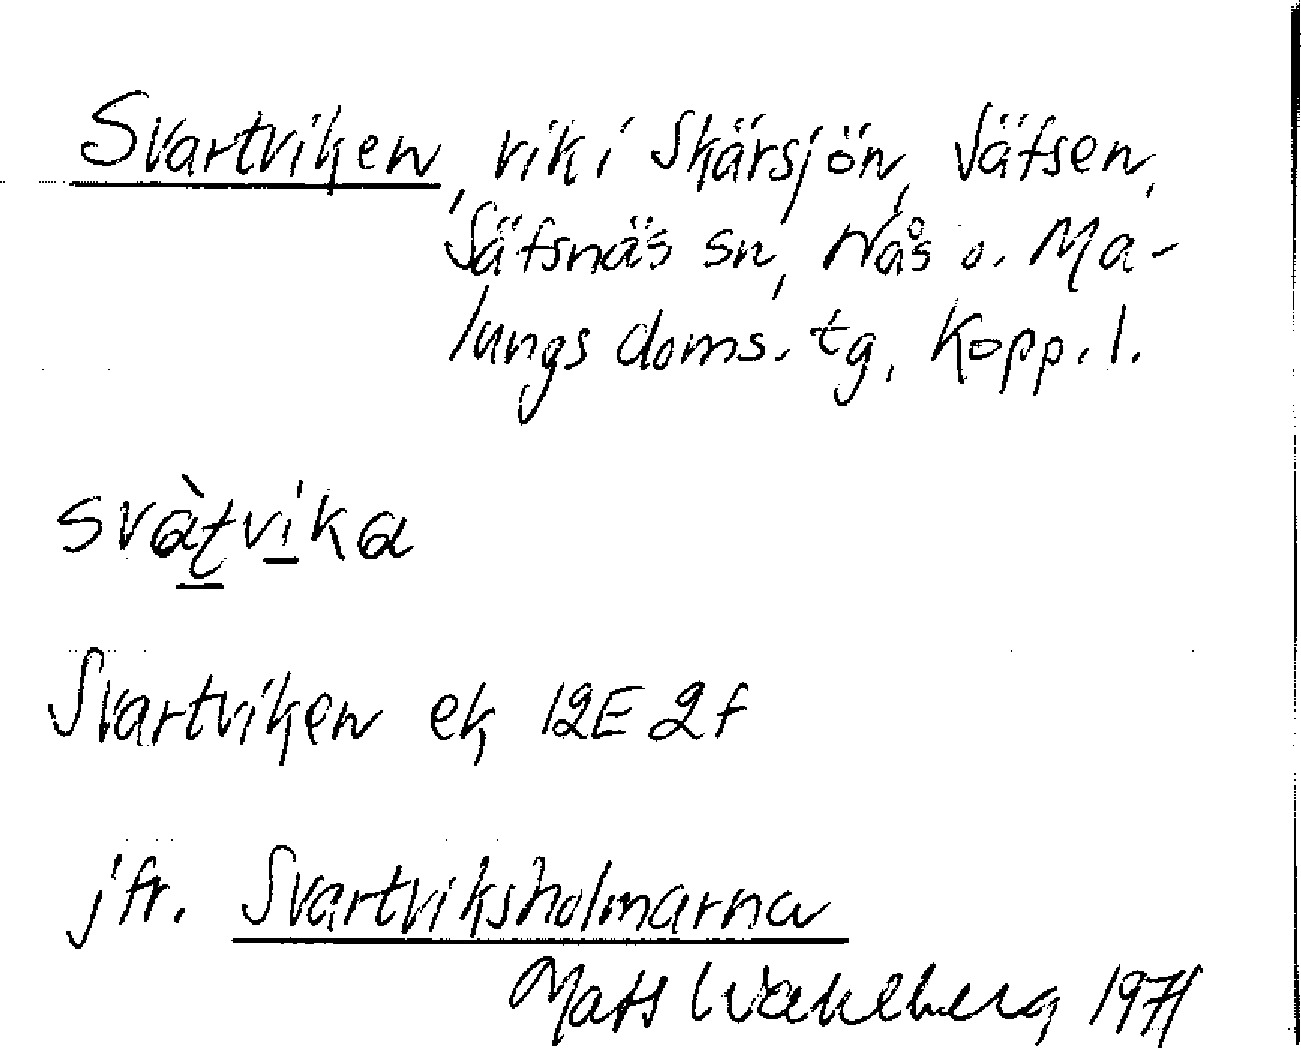 Svartviken, vik i Skärsjön, Säfsen,
Säfsnäs sn, Nås o. Ma-
lungs doms. tg, Kopp. l.
svàtvika
Svartviken ek 12E 2f
jfr. Svartviksholmarna
Mats Wahlberg 1971